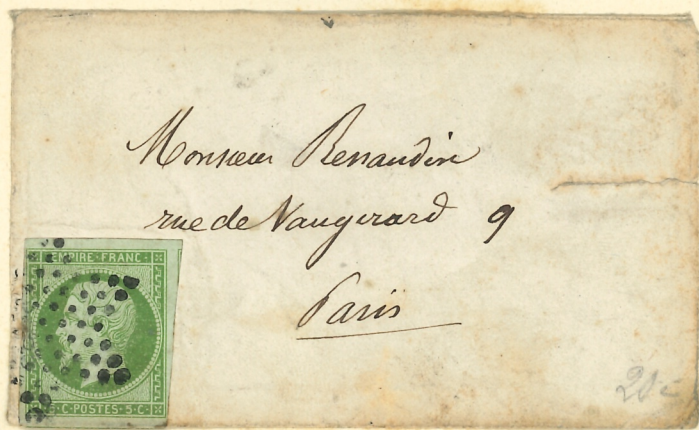 Monsieur Renaudin
rue de Vaugirard 9
Paris
EMPIRE·FRANC·
5·C·POSTES·5·C·